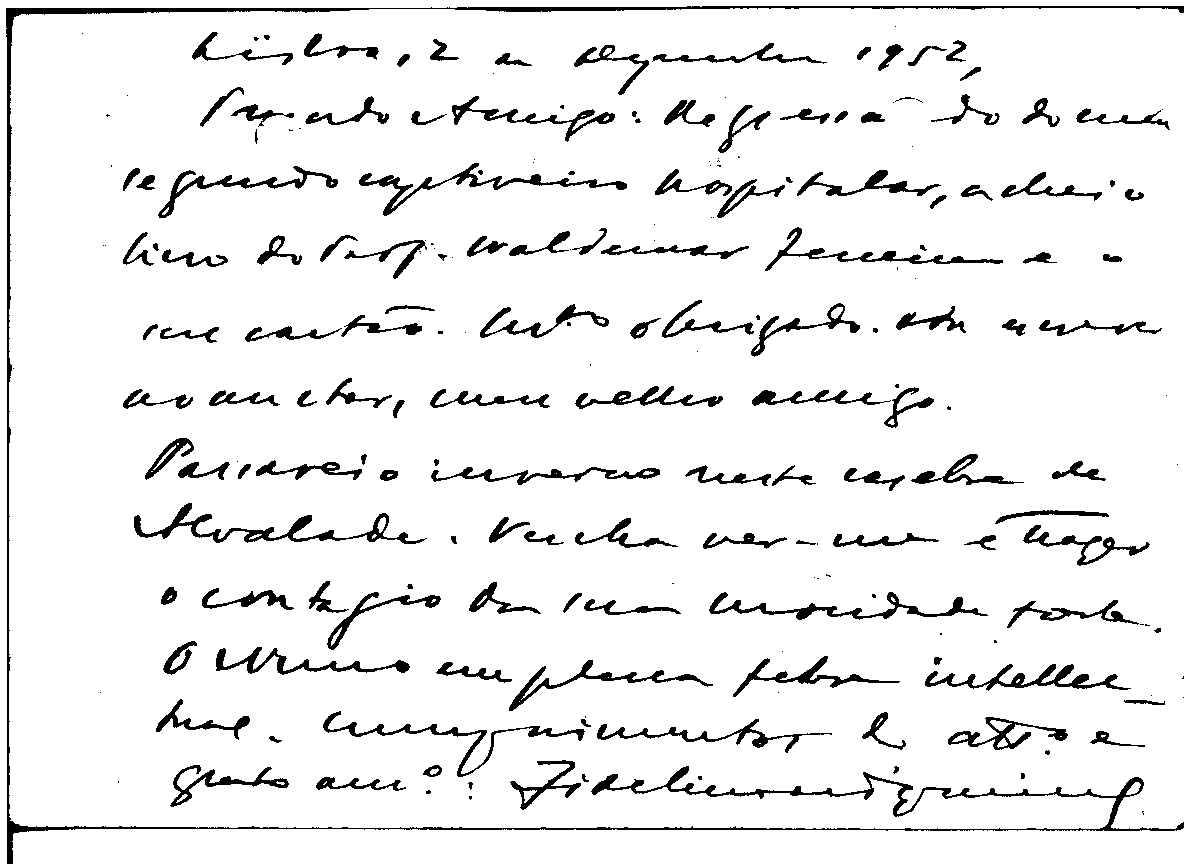 Lisboa, 2 de Dezembro 1952,
Prezado Amigo: Regressado do meu
segundo captiveiro hospitalar, achei o
livro do Prof. Waldemar Ferreira e o
seu cartão. Mto obrigado. Vou escrever
ao auctor, meu velho amigo.
Passarei o inverno neste casebre de
Alvalade. Venha ver-me e trazer
o contagio da sua mocidade forte.
O Nuno em plena febre intellec-
tual. Cumprimentos do atto. e
grato amo.: Fidelino de Figueiredo